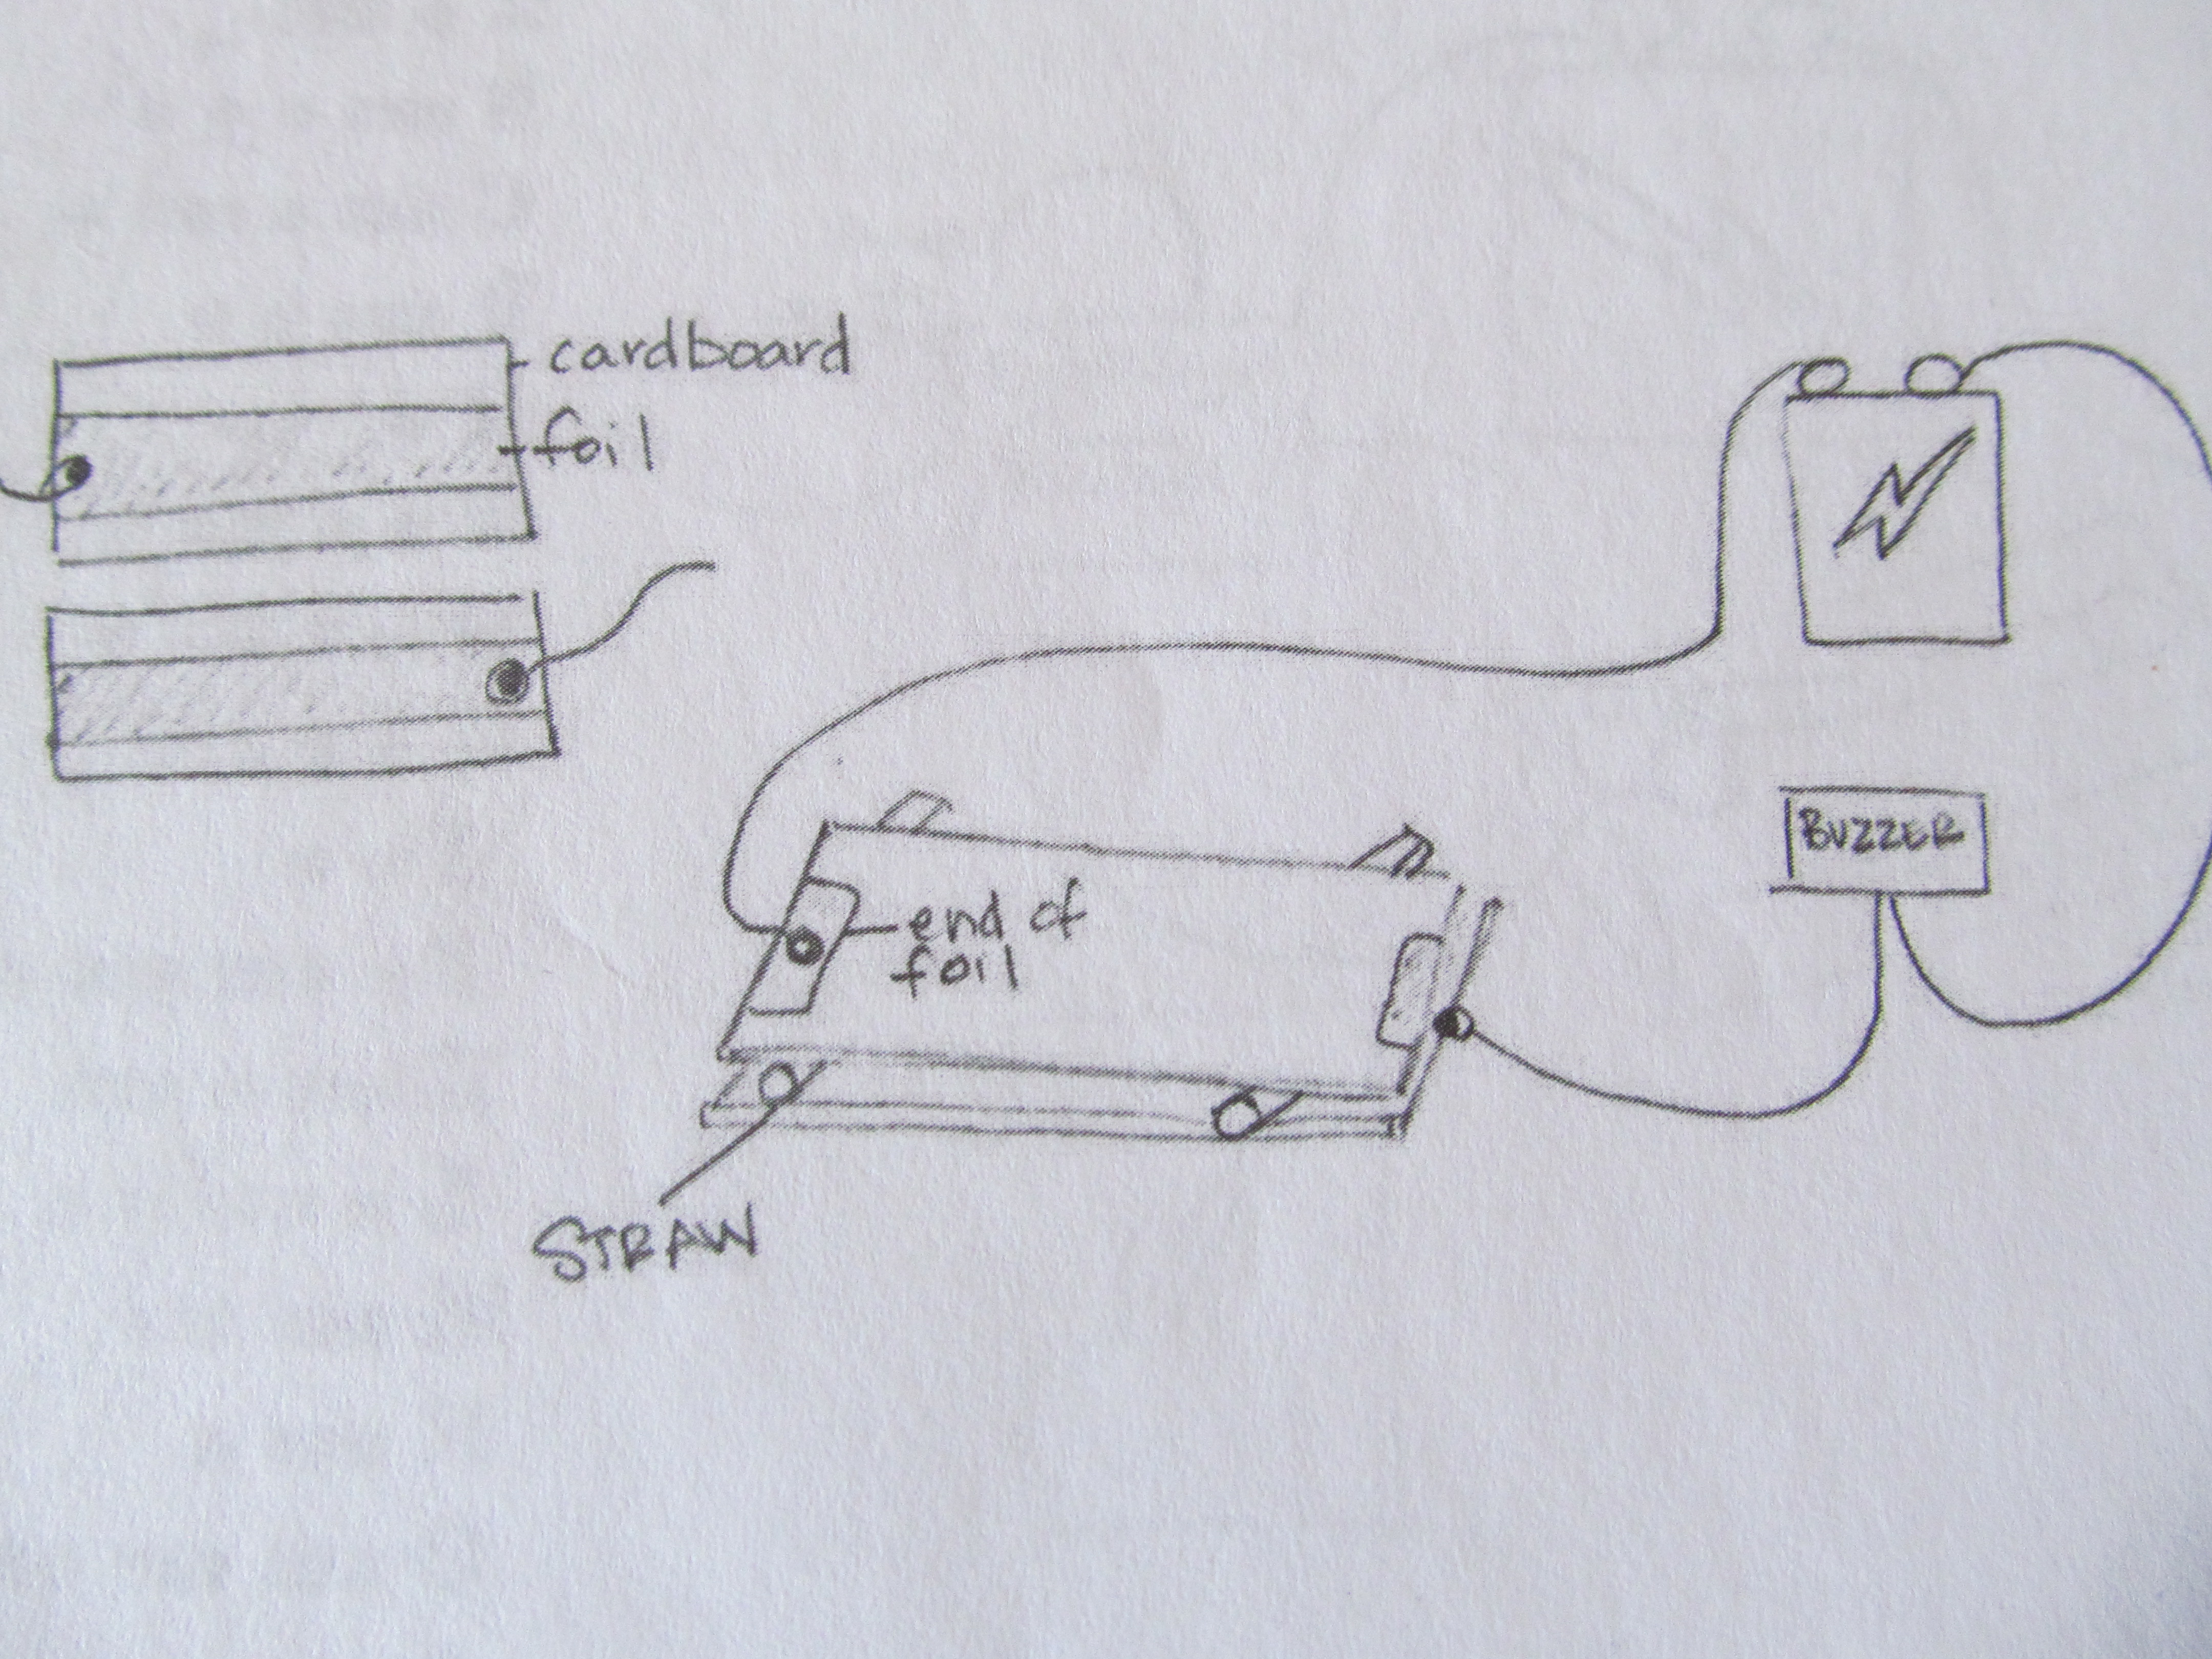 cardboard
foil
BUZZER
end of
foil
STRAW